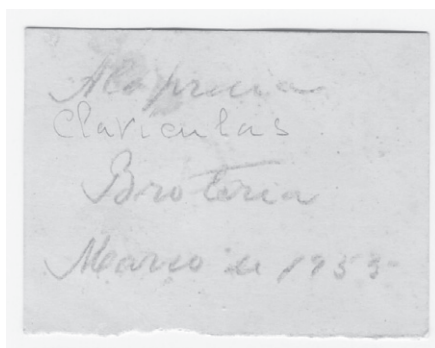 Alapraia
Claviculas
Broteria
Março de 1955